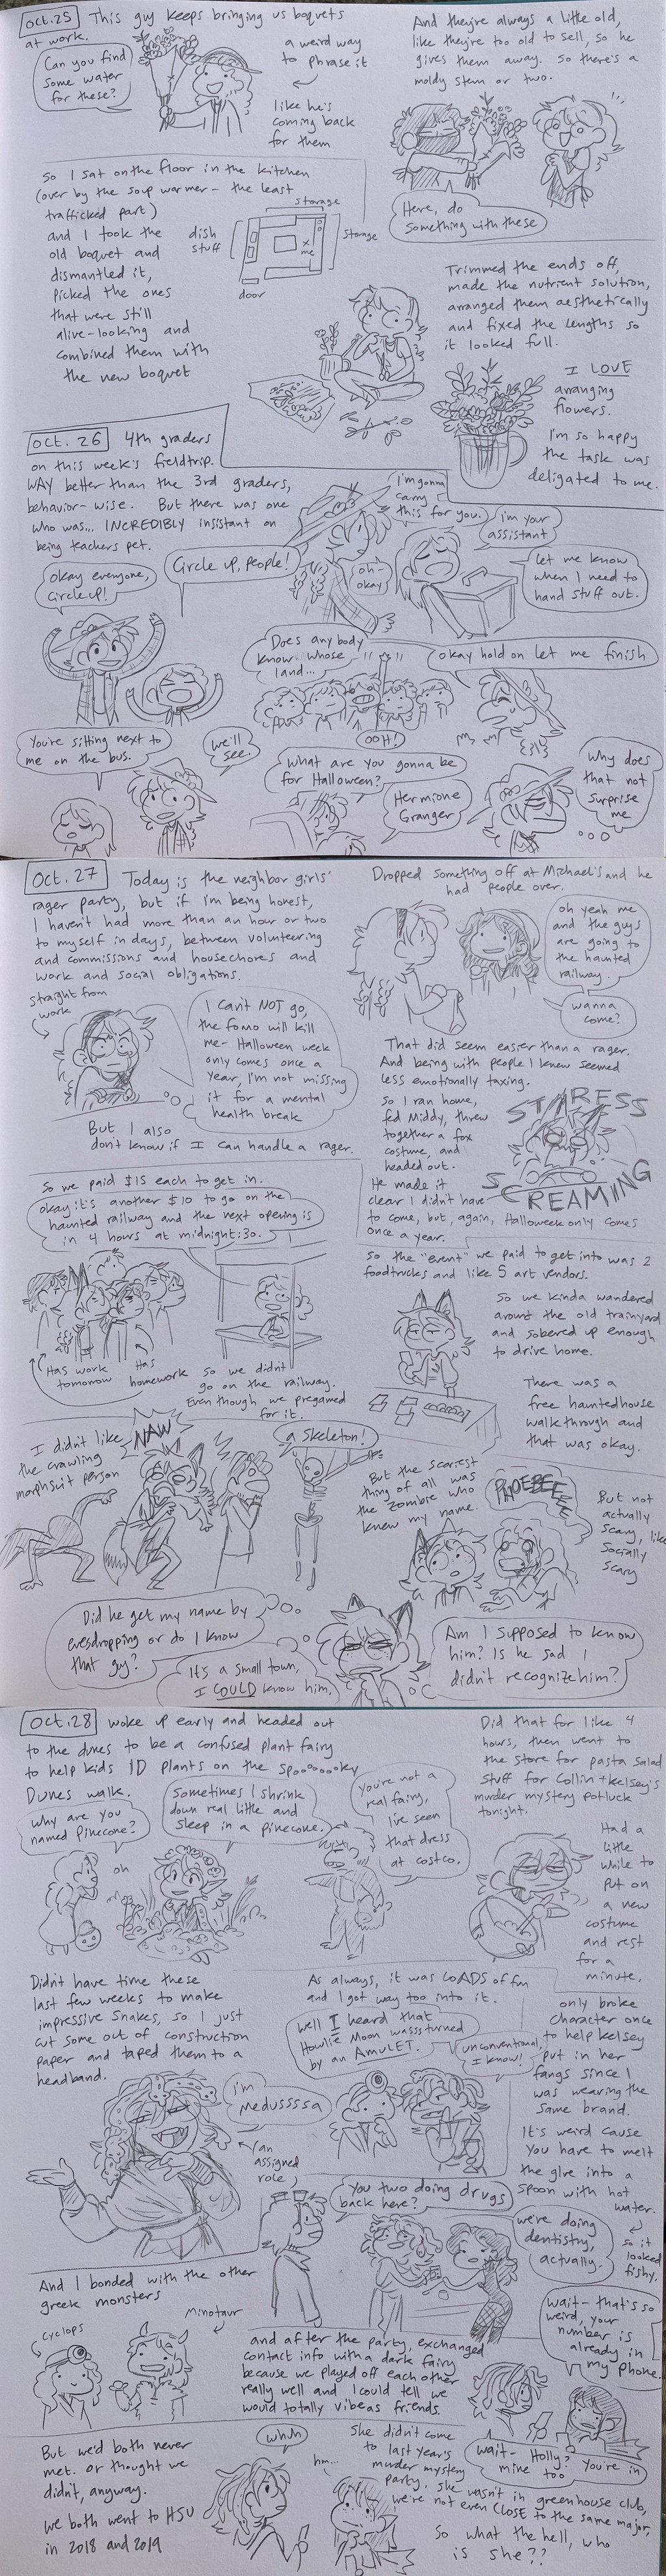 Oct. 25
This guy keeps bringing us boquets
at work.
Can you find
some water
for these?
a weird way
to phrase it
like he's
coming back
for them
And they're always a little old,
like they're too old to sell, so he
gives them away. So there's a
moldy stem or two.
Here, do
something with these
So I sat on the floor in the kitchen
(over by the soup warmer - the least
trafficked part)
and I took the
old boquet and
dismantled it,
picked the ones
that were still
alive-looking and
combined them with
the new boquet
storage
dish
stuff
storage
x
me
door
Trimmed the ends off,
made the nutrient solution,
arranged them aesthetically
and fixed the lengths so
it looked full.
I LOVE
arranging
flowers.
I'm so happy
the task was
deligated to me.
Oct. 26
4th graders
on this week's fieldtrip.
WAY better than the 3rd graders,
behavior-wise. But there was one
who was... INCREDIBLY insistant on
being teachers pet.
I'm gonna
carry
this for you.
oh-
okay
I'm your
assistant
let me know
when I need to
hand stuff out.
okay everyone,
circle up!
Circle up, people!
Does anybody
know whose
land...
OOH!
okay hold on let me finish
You're sitting next to
me on the bus.
we'll
see.
What are you gonna be
for Halloween?
Hermione
Granger
Why does
that not
surprise
me
Oct. 27
Today is the neighbor girls'
rager party, but if I'm being honest,
I haven't had more than an hour or two
to myself in days, between volunteering
and commissions and housechores and
work and social obligations.
straight from
work
I can't NOT go,
the fomo will kill
me- Halloween week
only comes once a
year, I'm not missing
it for a mental
health break
But I also
don't know if I can handle a rager.
Dropped something off at Michael's and he
had people over.
oh yeah me
and the guys
are going to
the haunted
railway.
wanna
come?
That did seem easier than a rager.
And being with people I knew seemed
less emotionally taxing.
So I ran home,
fed Middy, threw
together a fox
costume, and
headed out.
STRESS
SCREAMING
He made it
clear I didn't have
to come, but, again, Halloweek only comes
once a year.
So we paid $15 each to get in.
okay it's another $10 to go on the
haunted railway and the next opening is
in 4 hours at midnight:30.
Has work
tomorrow
Has
homework
so we didn't
go on the railway.
Even though we pregamed
for it.
So the "event" we paid to get into was 2
foodtrucks and like 5 art vendors.
So we kinda wandered
around the old trainyard
and sobered up enough
to drive home.
There was a
free hauntedhouse
walkthrough and
that was okay.
I didn't like
the crawling
morphsuit person
NAW
a skeleton!
But the scariest
thing of all was
the zombie who
knew my name.
PHOEBEEE
But not
actually
scary, like
socially
scary
Did he get my name by
evesdropping or do I know
that guy?
It's a small town,
I COULD know him.
Am I supposed to know
him? Is he sad I
didn't recognize him?
Oct. 28
woke up early and headed out
to the dunes to be a confused plant fairy
to help kids ID plants on the spooooooky
Dunes walk.
Why are you
named Pinecone?
oh
Sometimes I shrink
down real little and
sleep in a pinecone.
you're not a
real fairy,
I've seen
that dress
at costco.
Did that for like 4
hours, then went to
the store for pasta salad
stuff for Collin + Kelsey's
murder mystery potluck
tonight.
Had a
little
while to
put on
a new
costume
and rest
for a
minute.
Didn't have time these
last few weeks to make
impressive snakes, so I just
cut some out of construction
paper and taped them to a
headband.
I'm
Medussssa
(an
assigned
role)
As always, it was LOADS of fun
and I got way too into it.
well I heard that
Howlie Moon wasssturned
by an AMULET.
unconventional,
I know!
only broke
character once
to help kelsey
put in her
fangs since I
was wearing the
same brand.
It's weird cause
you have to melt
the glue into a
spoon with hot
water.
so it
looked
fishy.
You two doing drugs
back here?
we're doing
dentistry,
actually.
And I bonded with the other
greek monsters
cyclops
Minotaur
and after the party, exchanged
contact info with a dark fairy
because we played off each other
really well and I could tell we
would totally vibe as friends.
wait- that's so
weird, your
number is
already in
my phone.
wait- Holly? You're in
mine too
But we'd both never
met. or thought we
didn't, anyway.
we both went to HSU
in 2018 and 2019
whuh
hm...
She didn't come
to last year's
murder mystery
party, she wasn't in greenhouse club,
we're not even CLOSE to the same major,
so what the hell, who
is she??